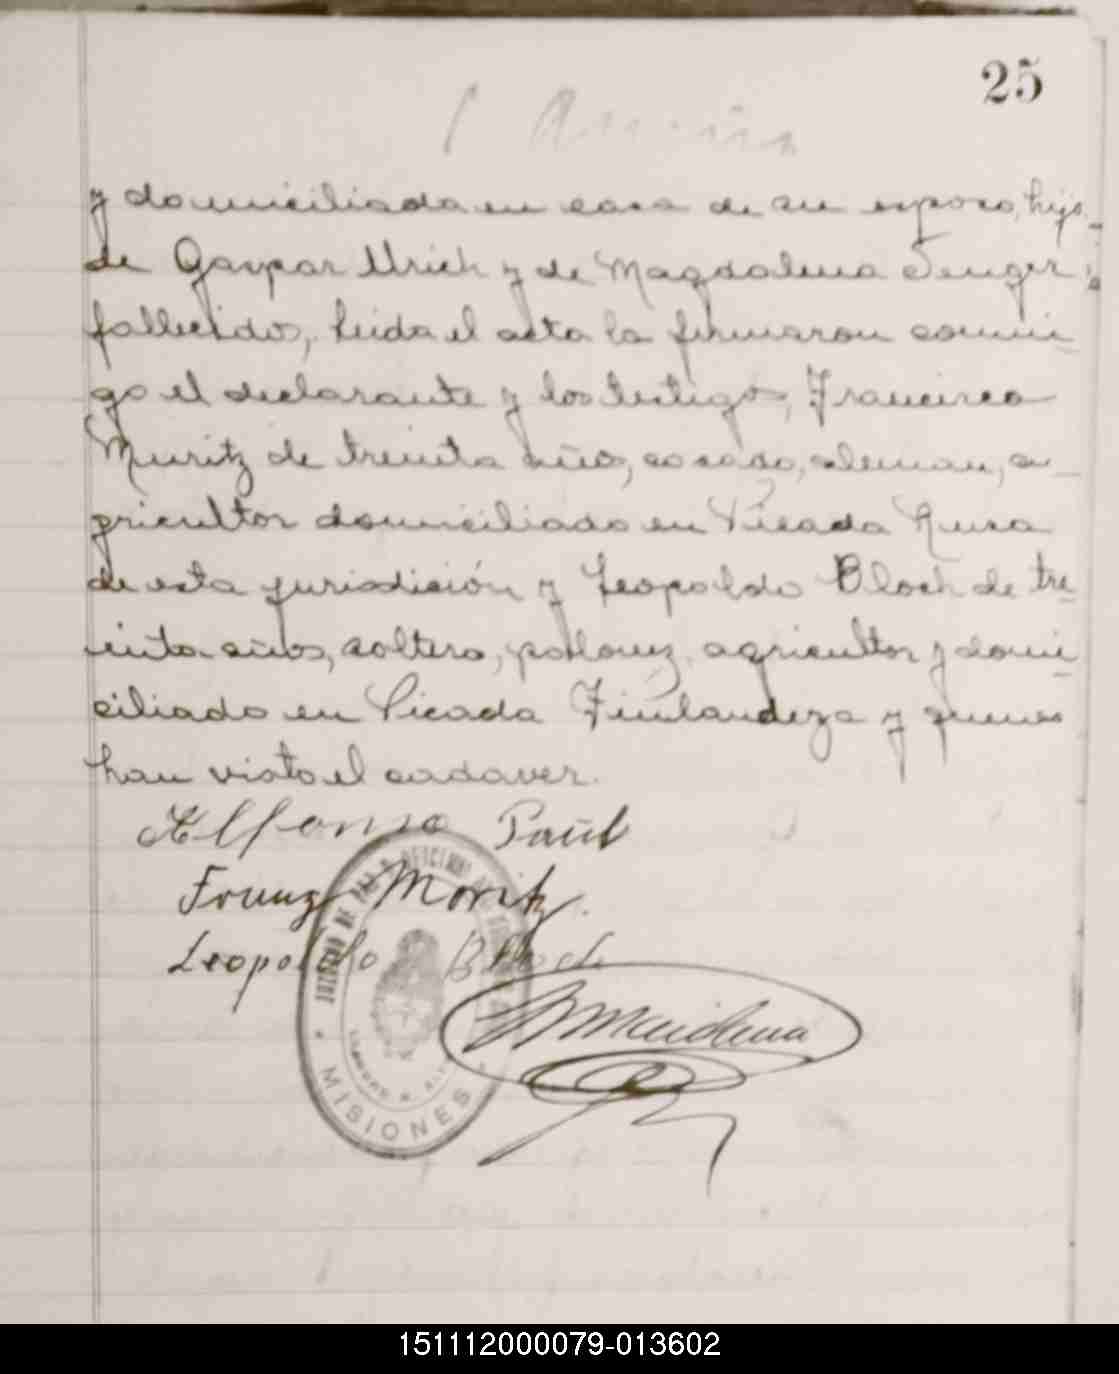 25
y domiciliada en casa de su esposo, hija
de Gaspar Urich y de Magdalena Senger
fallecidos, Leida el acta la firmaron conmi-
go el declarante y los testigos, Francisco
Muritz de treinta años, casado, aleman, a-
gricultor domiciliado en Picada Rusa
de esta jurisdición y Leopoldo Bloch de tre-
inta años, soltero, polonez, agricultor y domi-
ciliado en Picada Finlandeza y quienes
han visto el cadaver.
Alfonso Paul
Franz Moritz.
Leopoldo Bloch
JUZGADO DE PAZ OFICINA DEL
MISIONES
151112000079-013602